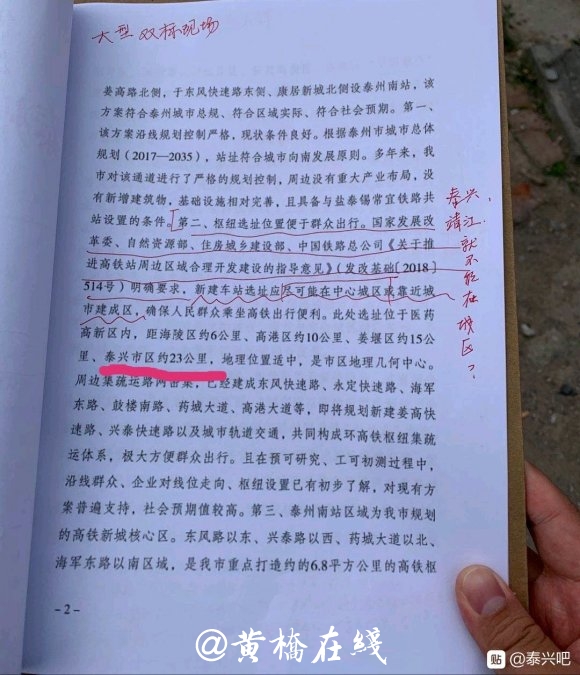 大型双标现场
姜高路北侧，于东风快速路东侧、康居新城北侧设泰州南站，该
方案符合泰州城市总规、符合区域实际、符合社会预期。第一、
该方案沿线规划控制严格，现状条件良好。根据泰州市城市总体
规划（2017—2035），站址符合城市向南发展原则。多年来，我
市对该通道进行了严格的规划控制，周边没有重大产业布局，没
有新增建筑物，基础设施相对完善，且具备与盐泰锡常宜铁路共
站设置的条件。第二、枢纽选址位置便于群众出行。国家发展改
革委、自然资源部、住房城乡建设部、中国铁路总公司《关于推
进高铁站周边区域合理开发建设的指导意见》（发改基础〔2018〕
514号）明确要求，新建车站选址应尽可能在中心城区或靠近城
市建成区，确保人民群众乘坐高铁出行便利。此处选址位于医药
高新区内，距海陵区约6公里、高港区约10公里、姜堰区约15公
里、泰兴市区约23公里，地理位置适中，是市区地理几何中心。
周边集疏运路网密集，已经建成东风快速路、永定快速路、海军
东路、鼓楼南路、药城大道、高港大道等，即将规划新建姜高快
速路、兴泰快速路以及城市轨道交通，共同构成环高铁枢纽集疏
运体系，极大方便群众出行。且在预可研究、工可初测过程中，
沿线群众、企业对线位走向、枢纽设置已有初步了解，对现有方
案普遍支持，社会预期值较高。第三、泰州南站区域为我市规划
的高铁新城核心区。东风路以东、兴泰路以西、药城大道以北、
海军东路以南区域，是我市重点打造约的6.8平方公里的高铁枢
泰兴，
靖江，
就
不
能
在
城
区
？
- 2 -
@黄桥在线
贴 @泰兴吧